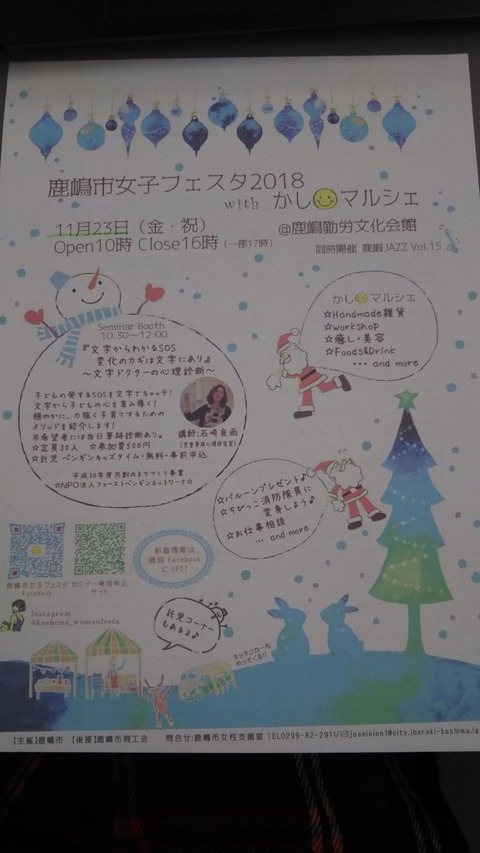 鹿嶋市女子フェスタ2018
with かし マルシェ
11月23日（金・祝）
@鹿嶋勤労文化会館
Open10時 Close16時（一部17時）
同時開催 鹿嶋JAZZ Vol.15
Seminar Booth
10:30～12:00
『文字からわかるSOS
変化のカギは文字にあり』
～文字ドクターの心理診断～
子どもの発するSOSを文字でキャッチ！
文字から子どもの心を育み導く！
穏やかに、力強く子育てするための
メソッドを紹介します！
※希望者には当日筆跡診断あり。
☆定員30人 ☆参加費500円
☆託児 ペンギンキッズタイム・無料・事前申込
講師:石崎
平成30年度共創のまちづくり事業
☆NPO法人ファーストペンギンネットワーク☆
かし マルシェ
☆Handmade雑貨
☆workshop
☆癒し・美容
☆Foods&Drink
... and more
☆バルーンプレゼント♪
☆ちびっこ消防隊員に
変身しよう♪
☆お仕事相談
... and more
鹿嶋市女子フェスタ
Facebook
セミナー専用申込
サイト
新着情報は
随時 Facebook
にUP!!
Instagram
@kashima_womanfesta
託児コーナー
もあるよ♪
キッチンカーも
やってくる!!
【主催】鹿嶋市 【後援】鹿嶋市商工会 問合せ:鹿嶋市女性支援室 TEL0299-82-2911/✉joseisien1@city.ibaraki-kashima.lg